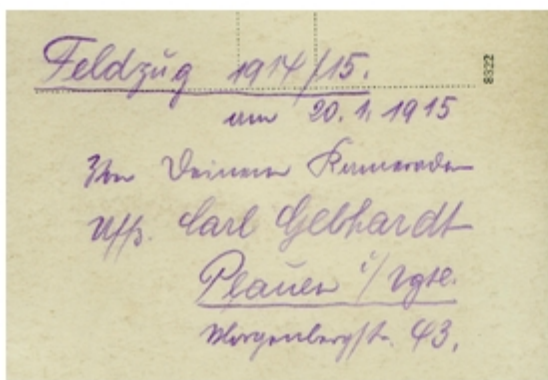 Feldzug 1914/15.
8322
am 20.1.1915
Von Deinem Kameraden
Uffz. Carl Gebhardt
Plauen i/Vgtl.
Morgenbergstr. 43.